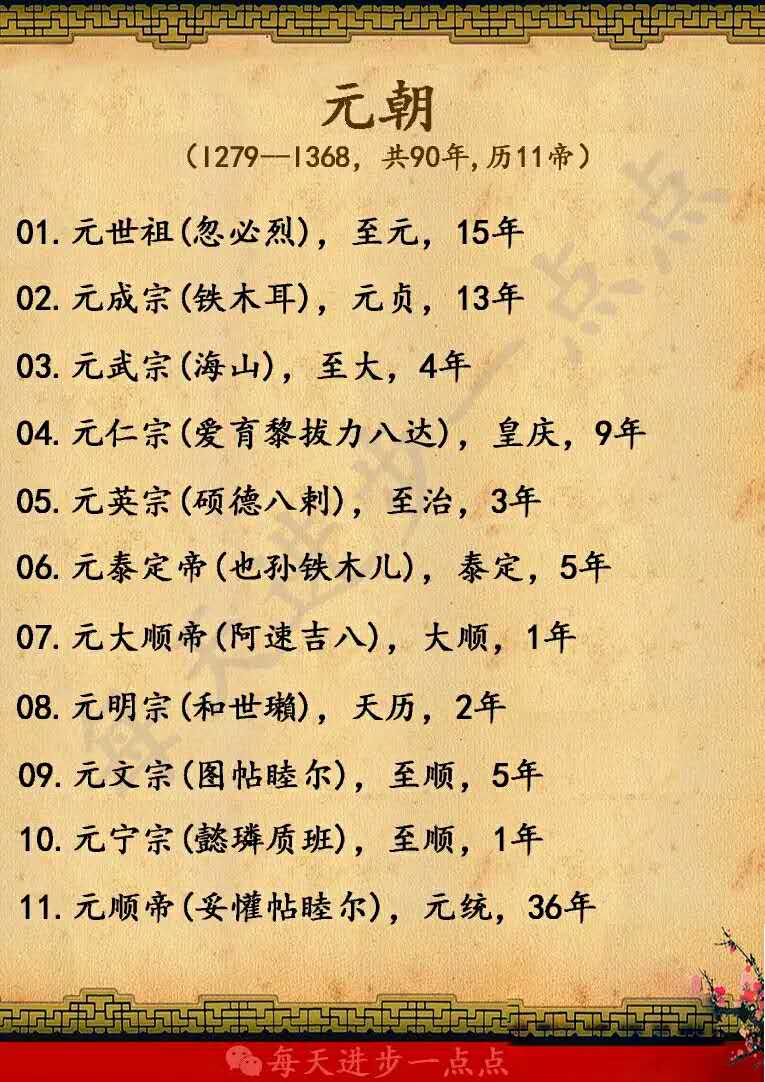 元朝
（1279--1368，共90年,历11帝）
01.元世祖(忽必烈)，至元，15年
02.元成宗(铁木耳)，元贞，13年
03.元武宗(海山)，至大，4年
04.元仁宗(爱育黎拔力八达)，皇庆，9年
05.元英宗(硕德八剌)，至治，3年
06.元泰定帝(也孙铁木儿)，泰定，5年
07.元大顺帝(阿速吉八)，大顺，1年
08.元明宗(和世瓎)，天历，2年
09.元文宗(图帖睦尔)，至顺，5年
10.元宁宗(懿璘质班)，至顺，1年
11.元顺帝(妥懽帖睦尔)，元统，36年
每天进步一点点
每天进步一点点